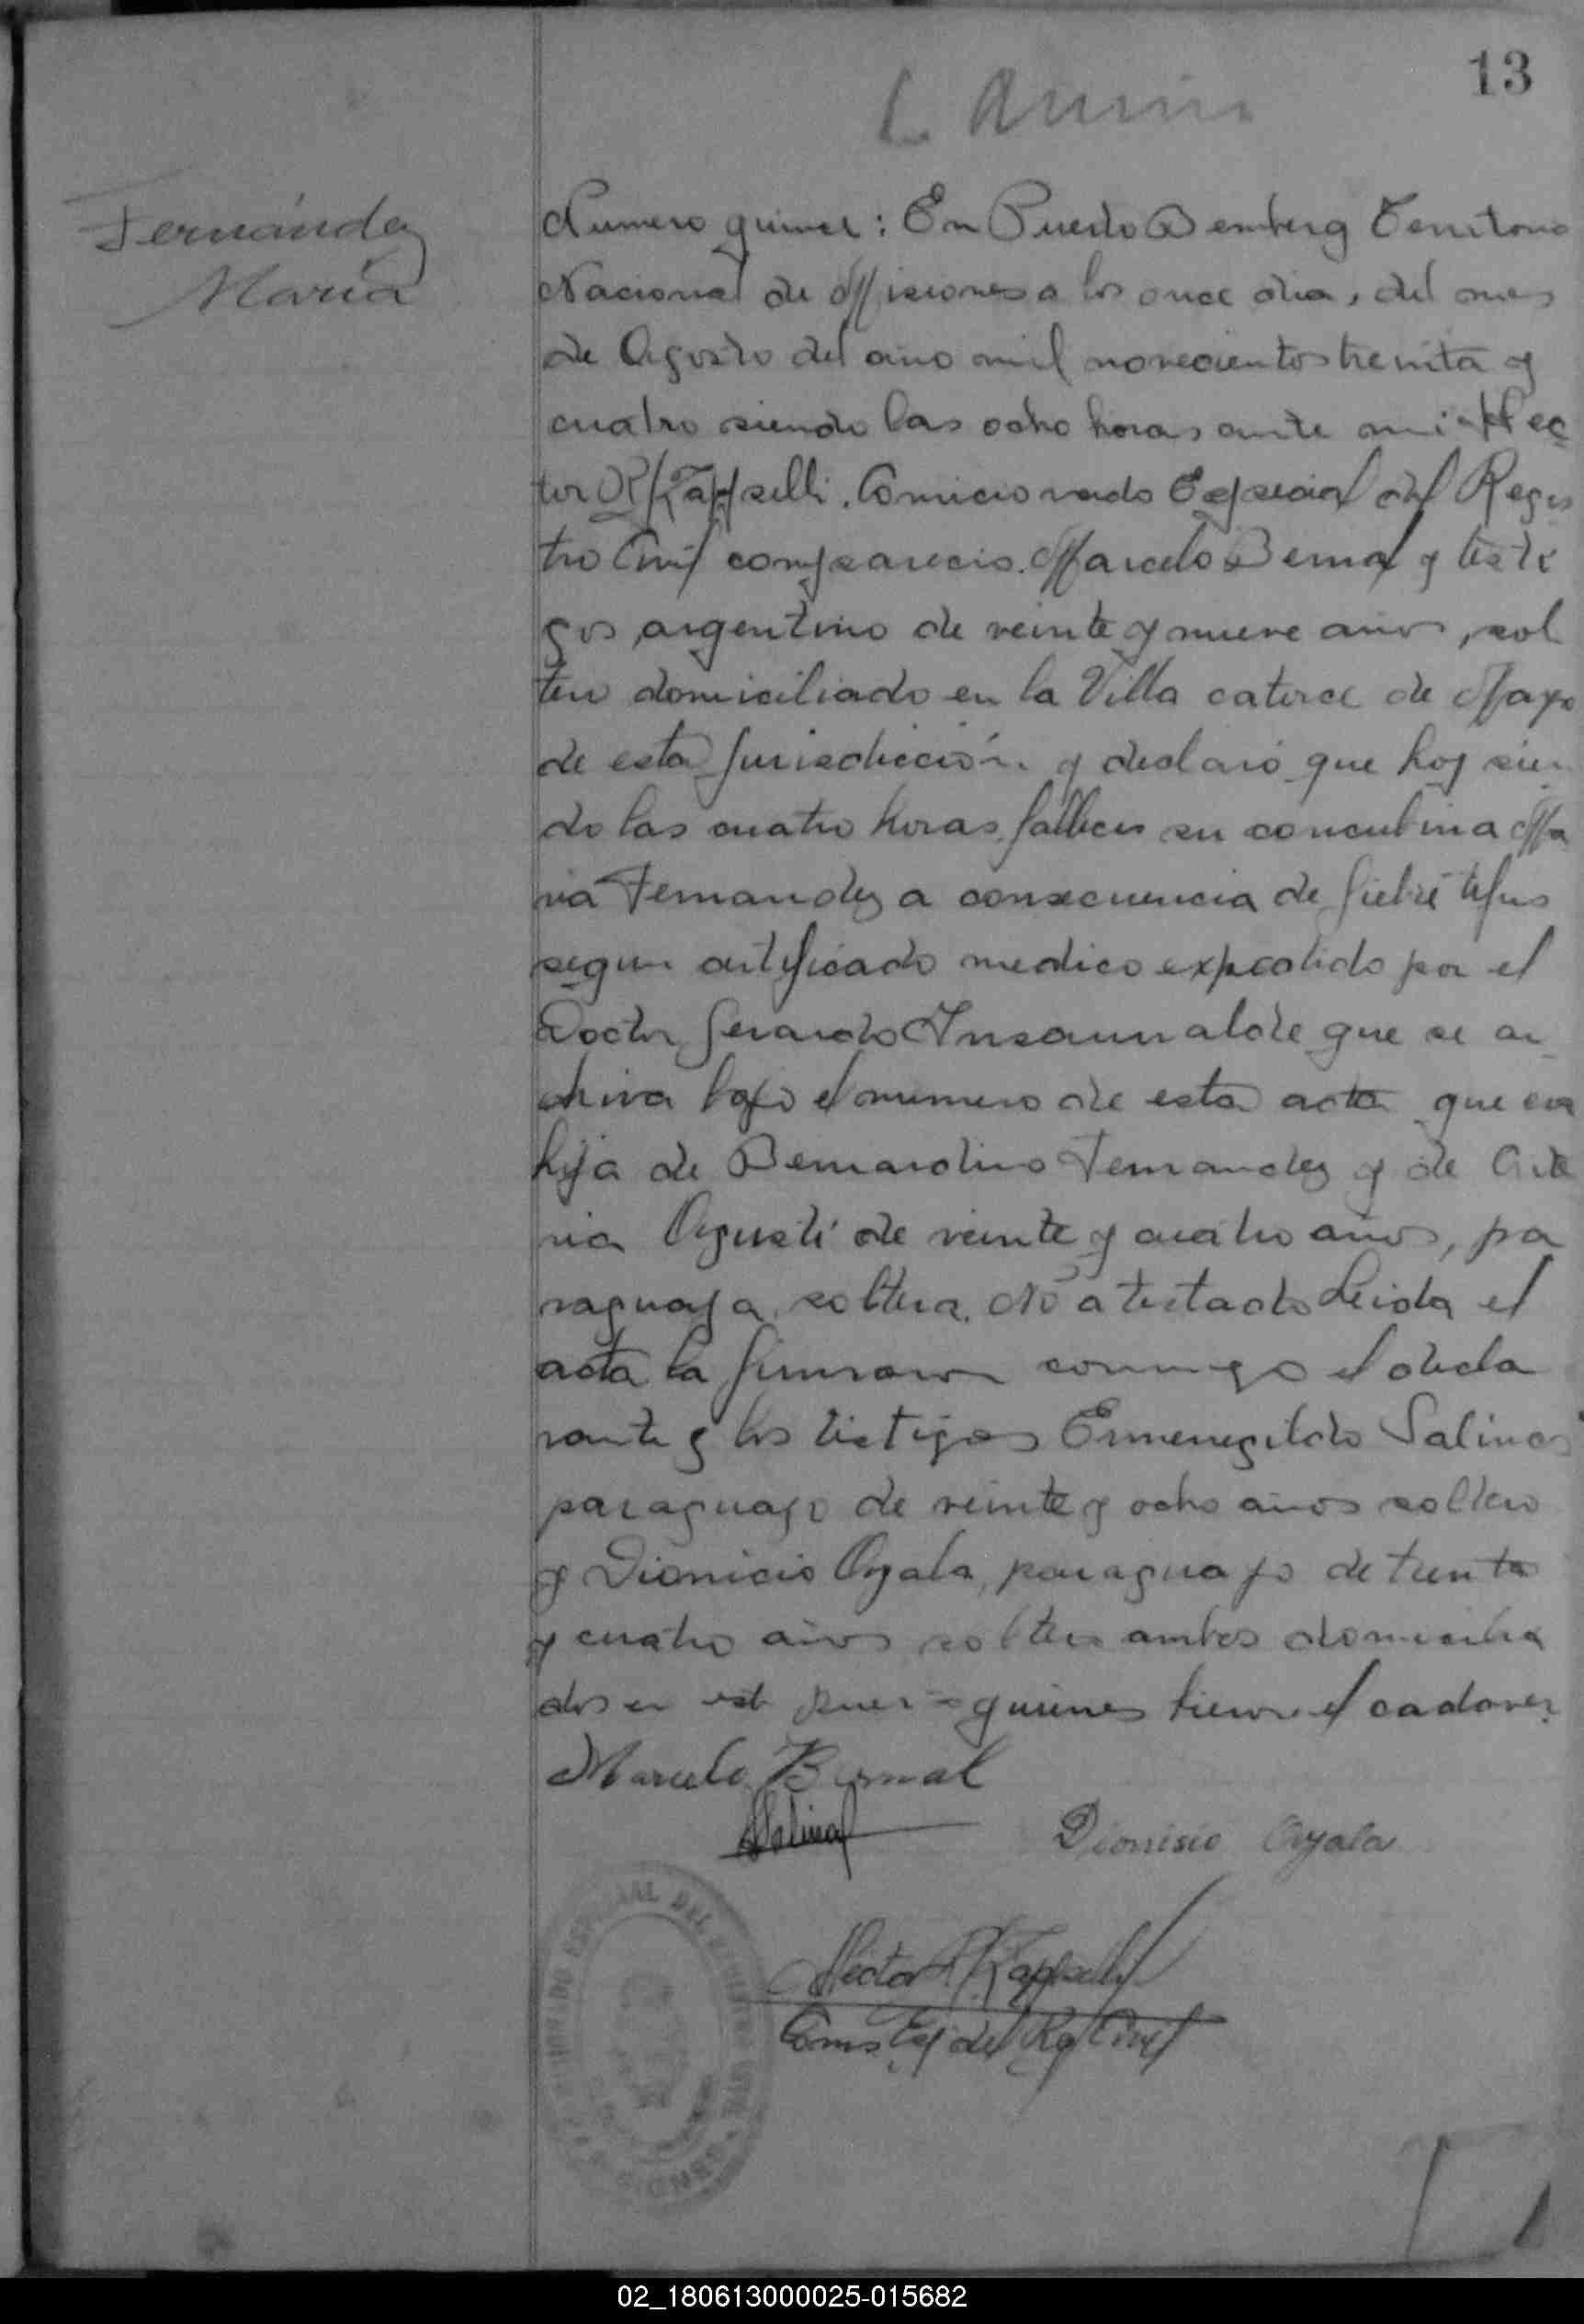 13
Fernández
María
Numero quince: En Puerto Bemberg Territorio
Nacional de Misiones a los once dias, del mes
de Agosto del año mil novecientos treinta y
cuatro siendo las ocho horas ante mi Hec
tor Comicionado Especial del Regis
tro Civil comparecio. Marcelo Bernal y testi
gos argentino de veinte y nueve años, sol
tero domiciliado en la Villa catorce de Mayo
de esta jurisdicción y declaró que hoy sien
do las cuatro horas fallecio su concubina Ma
ria Fernandez a consecuencia de fiebre tifus
segun certificado medico expedido por el
Doctor Gerardo que se ar
chiva bajo el numero de esta acta que era
hija de Bernardino Fernandez y de
Agusti de veinte y cuatro años, pa
raguaya, soltera. No a testado Leida el
acta la firmaron conmigo el decla
rante y los testigos Ermenegildo Salinas
paraguayo de veinte y ocho años soltero
y Dionicio Ayala, paraguayo de treinta
y cuatro años soltero ambos domicilia
dos en este puerto quienes el cadaver.
Marcelo Bernal
Salinas
Dionisio Ayala
Hector
Comis Esp del Reg Civil
02_180613000025-015682